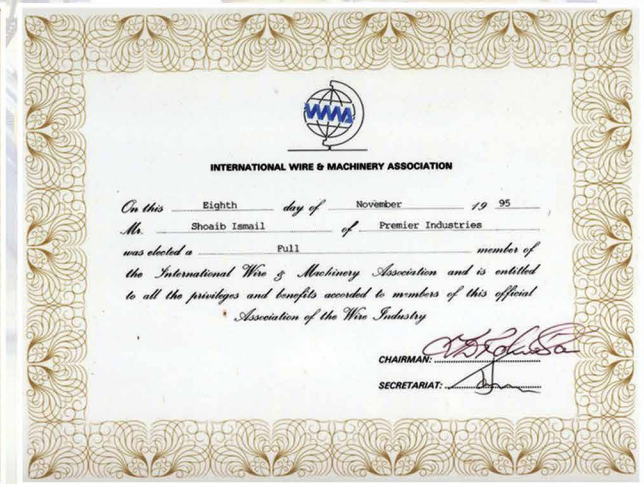 IWMA
INTERNATIONAL WIRE & MACHINERY ASSOCIATION
On this Eighth day of November 19 95
Mr. Shoaib Ismail of Premier Industries
was elected a Full member of
the International Wire & Machinery Association and is entitled
to all the privileges and benefits accorded to members of this official
Association of the Wire Industry
CHAIRMAN:
SECRETARIAT: